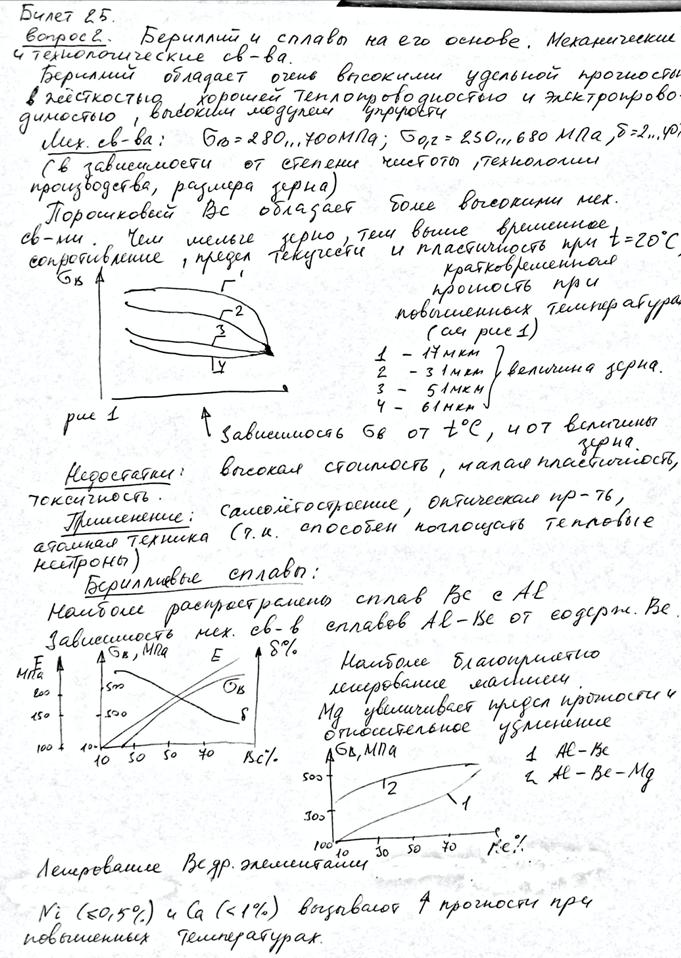 Билет 25.
Вопрос 2. Бериллий и сплавы на его основе. Механические
и технологические св-ва.
Бериллий обладает очень высокими удельной прочностью
и жёсткостью, хорошей теплопроводностью и электропрово-
димостью, высоким модулем упругости
Мех. св-ва: σв = 280...700 МПа; σ0,2 = 230...680 МПа, δ = 2...40%
(в зависимости от степени чистоты, технологии
производства, размера зерна)
Порошковый Ве обладает более высокими мех.
св-ми. Чем мельче зерно, тем выше временное
сопротивление, предел текучести и пластичность при t=20°C,
кратковременная
прочность при
повышенных температурах
(см рис 1)
σв
1
2
3
4
1 – 17 мкм
2 – 31 мкм
3 – 51 мкм
4 – 61 мкм
величина зерна.
рис 1
Зависимость σв от t°C, и от величины
зерна
Недостатки: высокая стоимость, малая пластичность,
токсичность.
Применение: самолётостроение, оптическая пр-ть,
атомная техника (т.к. способен поглощать тепловые
нейтроны)
Бериллиевые сплавы:
Наиболее распространены сплав Ве с Al
Зависимость мех. св-в сплавов Al–Be от содерж. Ве.
E
МПа
200
150
100
σв, МПа
500
500
10
E
σв
δ
δ%
10 30 50 70 Ве%
Наиболее благоприятно
легирование магнием
Mg увеличивает предел прочности и
относительное удлинение
σв, МПа
500
300
100
2
1
10 30 50 70 Ве%
1 Al–Be
2 Al–Be–Mg
Легирование Ве др. элементами
Ni (≤0,5%) и Ca (<1%) вызывают ↑ прочности при
повышенных температурах.